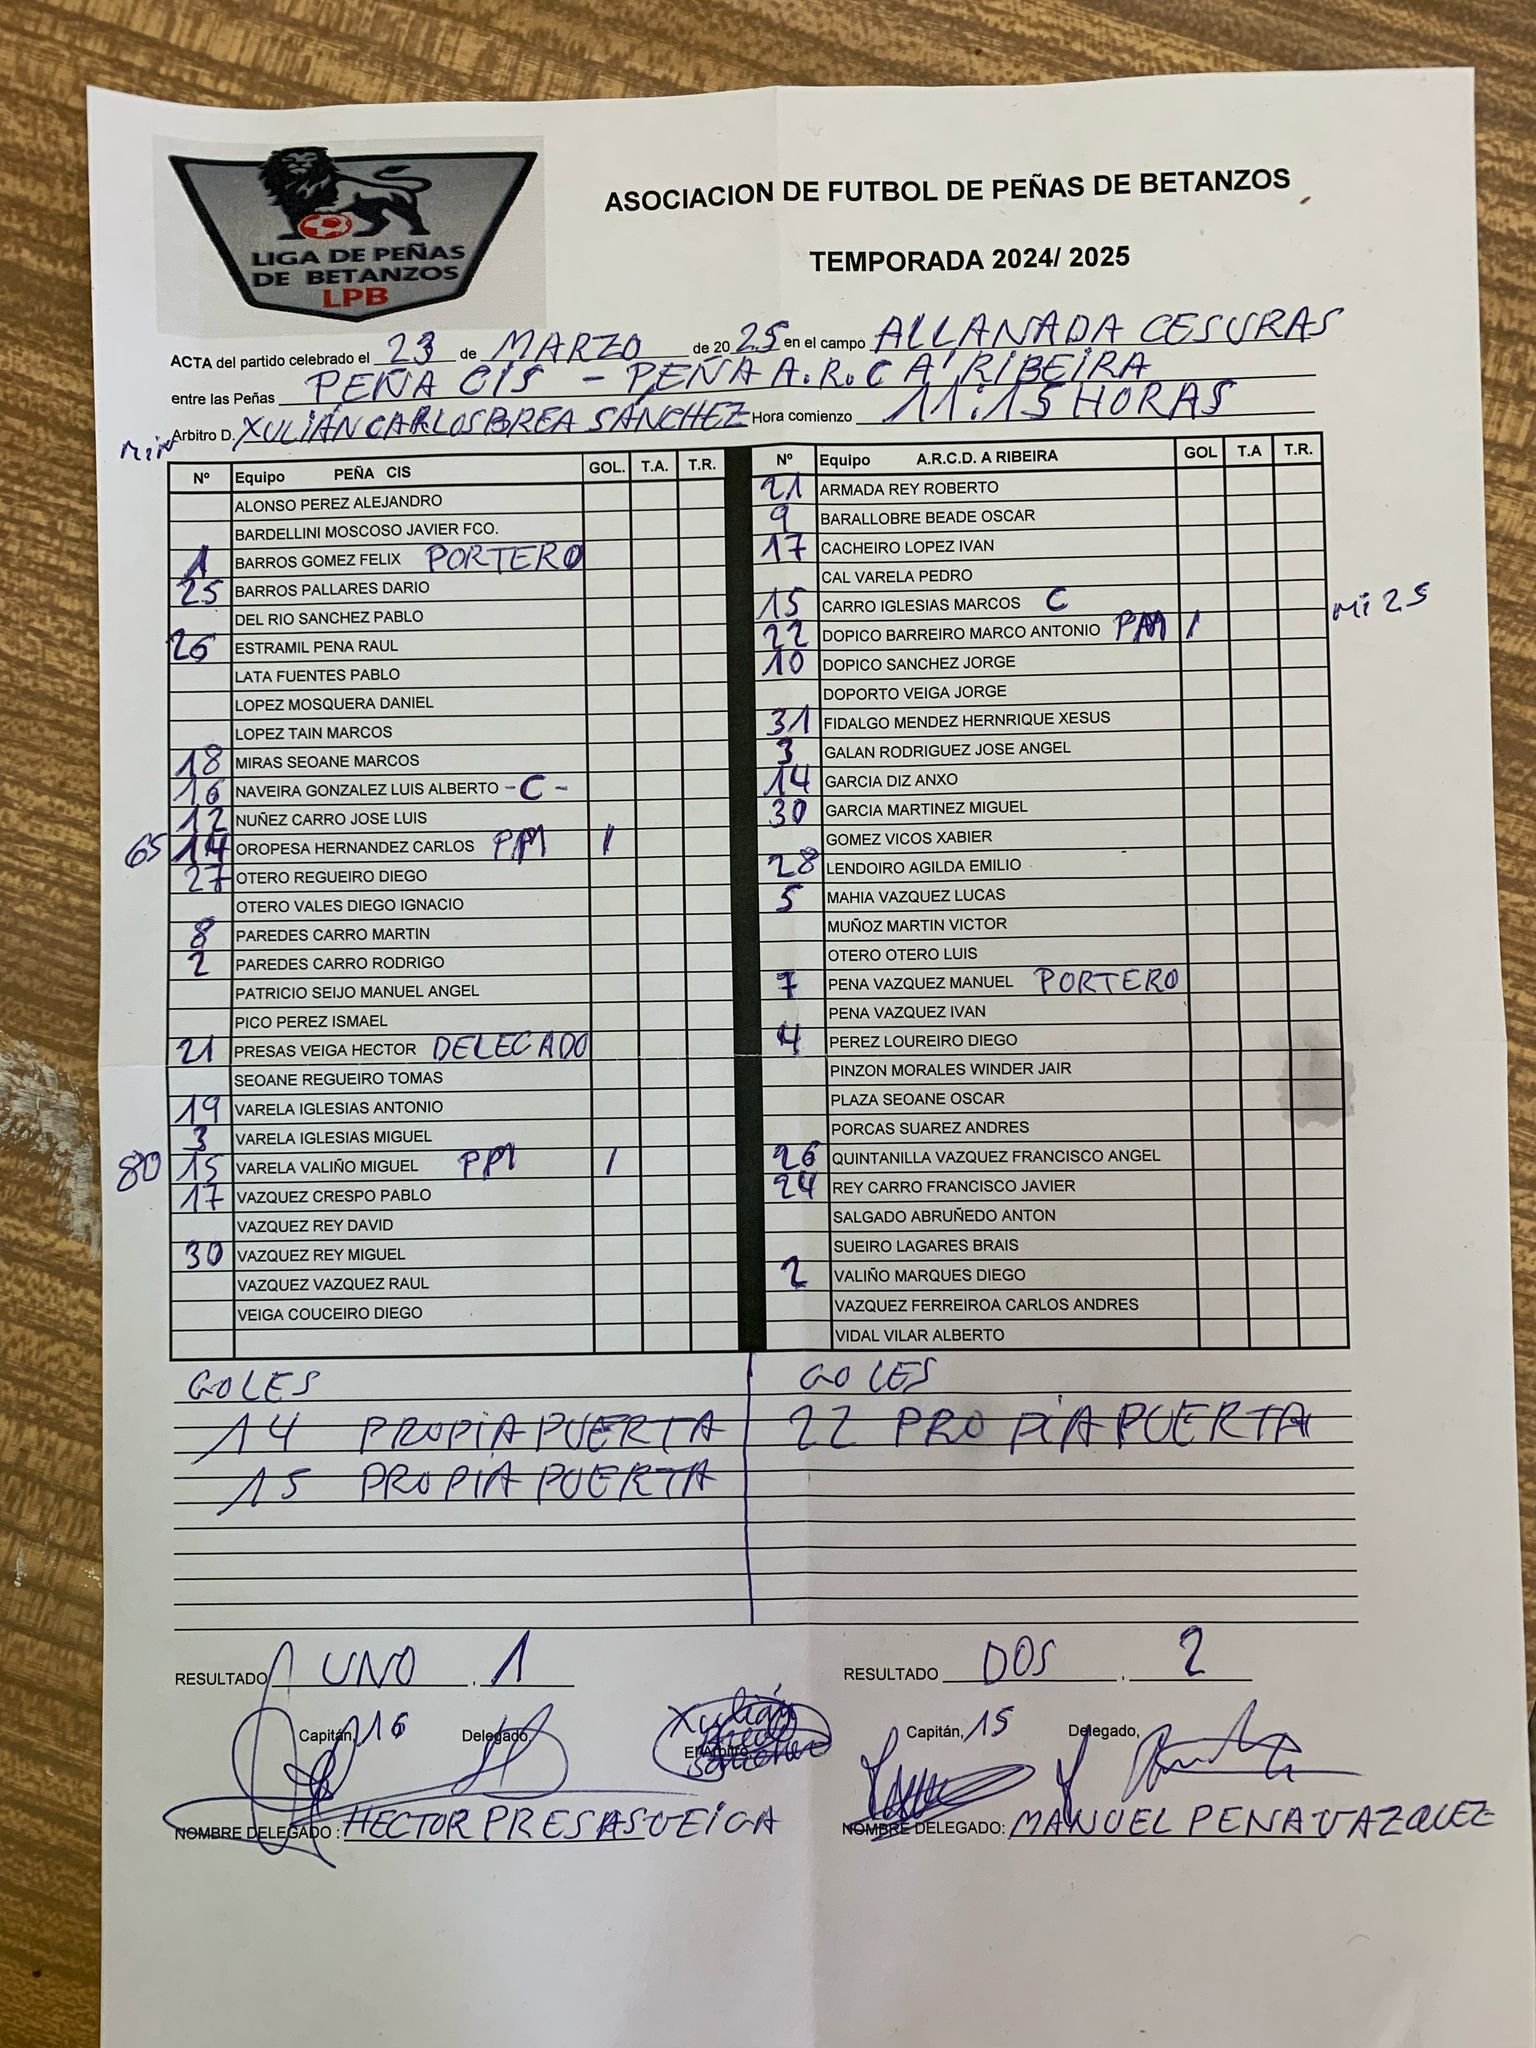 LIGA DE PEÑAS
DE BETANZOS
LPB
ASOCIACION DE FUTBOL DE PEÑAS DE BETANZOS
TEMPORADA 2024/ 2025
ACTA del partido celebrado el 23 de MARZO de 2025 en el campo ALLANADA CESURAS
entre las Peñas PEÑA CIS - PEÑA A.R.C A RIBEIRA
Arbitro D. XULIÁN CARLOS BREA SÁNCHEZ Hora comienzo 11:15 HORAS
Min
Nº Equipo PEÑA CIS GOL. T.A. T.R.
ALONSO PEREZ ALEJANDRO
BARDELLINI MOSCOSO JAVIER FCO.
1 BARROS GOMEZ FELIX PORTERO
25 BARROS PALLARES DARIO
DEL RIO SANCHEZ PABLO
26 ESTRAMIL PENA RAUL
LATA FUENTES PABLO
LOPEZ MOSQUERA DANIEL
LOPEZ TAIN MARCOS
18 MIRAS SEOANE MARCOS
16 NAVEIRA GONZALEZ LUIS ALBERTO - C -
12 NUÑEZ CARRO JOSE LUIS
65 14 OROPESA HERNANDEZ CARLOS PPM 1
27 OTERO REGUEIRO DIEGO
OTERO VALES DIEGO IGNACIO
8 PAREDES CARRO MARTIN
2 PAREDES CARRO RODRIGO
PATRICIO SEIJO MANUEL ANGEL
PICO PEREZ ISMAEL
21 PRESAS VEIGA HECTOR DELEGADO
SEOANE REGUEIRO TOMAS
19 VARELA IGLESIAS ANTONIO
3 VARELA IGLESIAS MIGUEL
80 15 VARELA VALIÑO MIGUEL PPM 1
17 VAZQUEZ CRESPO PABLO
VAZQUEZ REY DAVID
30 VAZQUEZ REY MIGUEL
VAZQUEZ VAZQUEZ RAUL
VEIGA COUCEIRO DIEGO
Nº Equipo A.R.C.D. A RIBEIRA GOL T.A T.R.
21 ARMADA REY ROBERTO
9 BARALLOBRE BEADE OSCAR
17 CACHEIRO LOPEZ IVAN
CAL VARELA PEDRO
15 CARRO IGLESIAS MARCOS C
22 DOPICO BARREIRO MARCO ANTONIO 1 Mi 25
10 DOPICO SANCHEZ JORGE
DOPORTO VEIGA JORGE
31 FIDALGO MENDEZ HERNRIQUE XESUS
3 GALAN RODRIGUEZ JOSE ANGEL
14 GARCIA DIZ ANXO
30 GARCIA MARTINEZ MIGUEL
GOMEZ VICOS XABIER
28 LENDOIRO AGILDA EMILIO
5 MAHIA VAZQUEZ LUCAS
MUÑOZ MARTIN VICTOR
OTERO OTERO LUIS
7 PENA VAZQUEZ MANUEL PORTERO
PENA VAZQUEZ IVAN
4 PEREZ LOUREIRO DIEGO
PINZON MORALES WINDER JAIR
PLAZA SEOANE OSCAR
PORCAS SUAREZ ANDRES
26 QUINTANILLA VAZQUEZ FRANCISCO ANGEL
24 REY CARRO FRANCISCO JAVIER
SALGADO ABRUÑEDO ANTON
SUEIRO LAGARES BRAIS
2 VALIÑO MARQUES DIEGO
VAZQUEZ FERREIROA CARLOS ANDRES
VIDAL VILAR ALBERTO
GOLES
14 PROPIA PUERTA
15 PROPIA PUERTA
GOLES
22 PROPIA PUERTA
RESULTADO UNO , 1
RESULTADO DOS , 2
Capitán, 16 Delegado, El Arbitro Capitán, 15 Delegado,
Xulián
NOMBRE DELEGADO : HECTOR PRESAS VEIGA
NOMBRE DELEGADO: MANUEL PENA VAZQUEZ